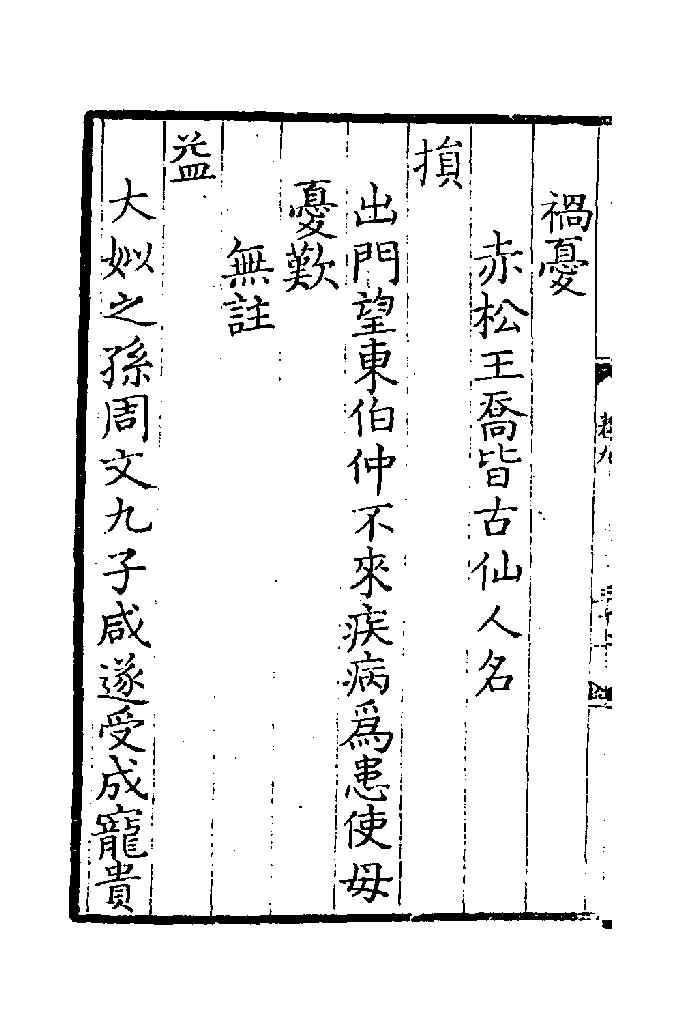 禍憂
赤松王喬皆古仙人名
損
出門望東伯仲不來疾病爲患使母
憂歎
無註
益
大姒之孫周文九子咸遂受成寵貴